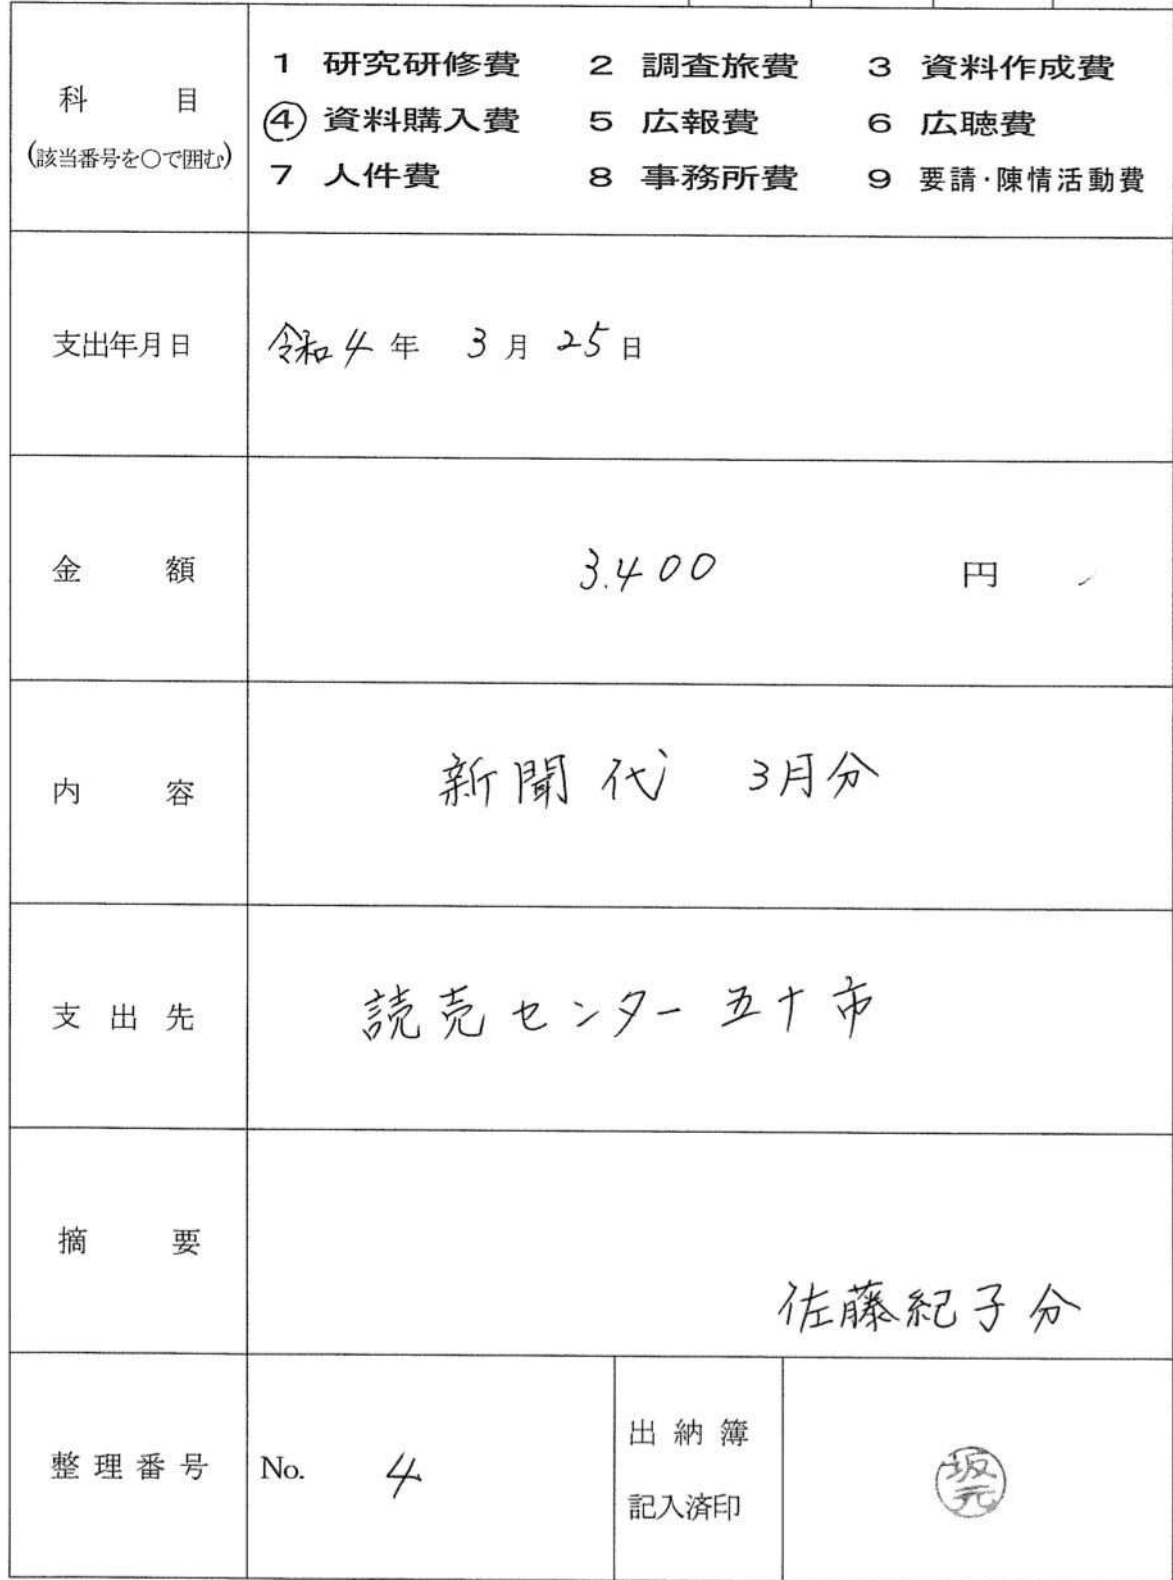 科目
(該当番号を○で囲む)
1 研究研修費 2 調査旅費 3 資料作成費
④ 資料購入費 5 広報費 6 広聴費
7 人件費 8 事務所費 9 要請・陳情活動費
支出年月日 令和4年 3月 25日
金額 3.400 円
内容 新聞代 3月分
支出先 読売センター五十市
摘要
佐藤紀子分
整理番号 No. 4
出納簿
記入済印
坂元